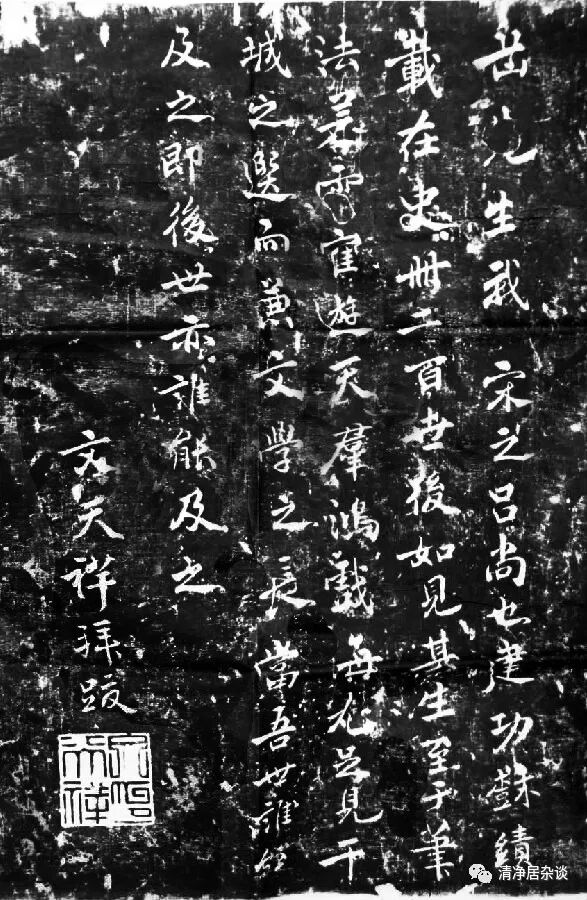 岳先生我 宋之呂尚也建功樹績
載在史冊千百世後如見其生至于筆
法若雲寉遊天羣鴻戲海尤足見干
城之選而兼文學之長當吾世誰能
及之即後世亦誰能及之
文天祥拜跋
清净居杂谈